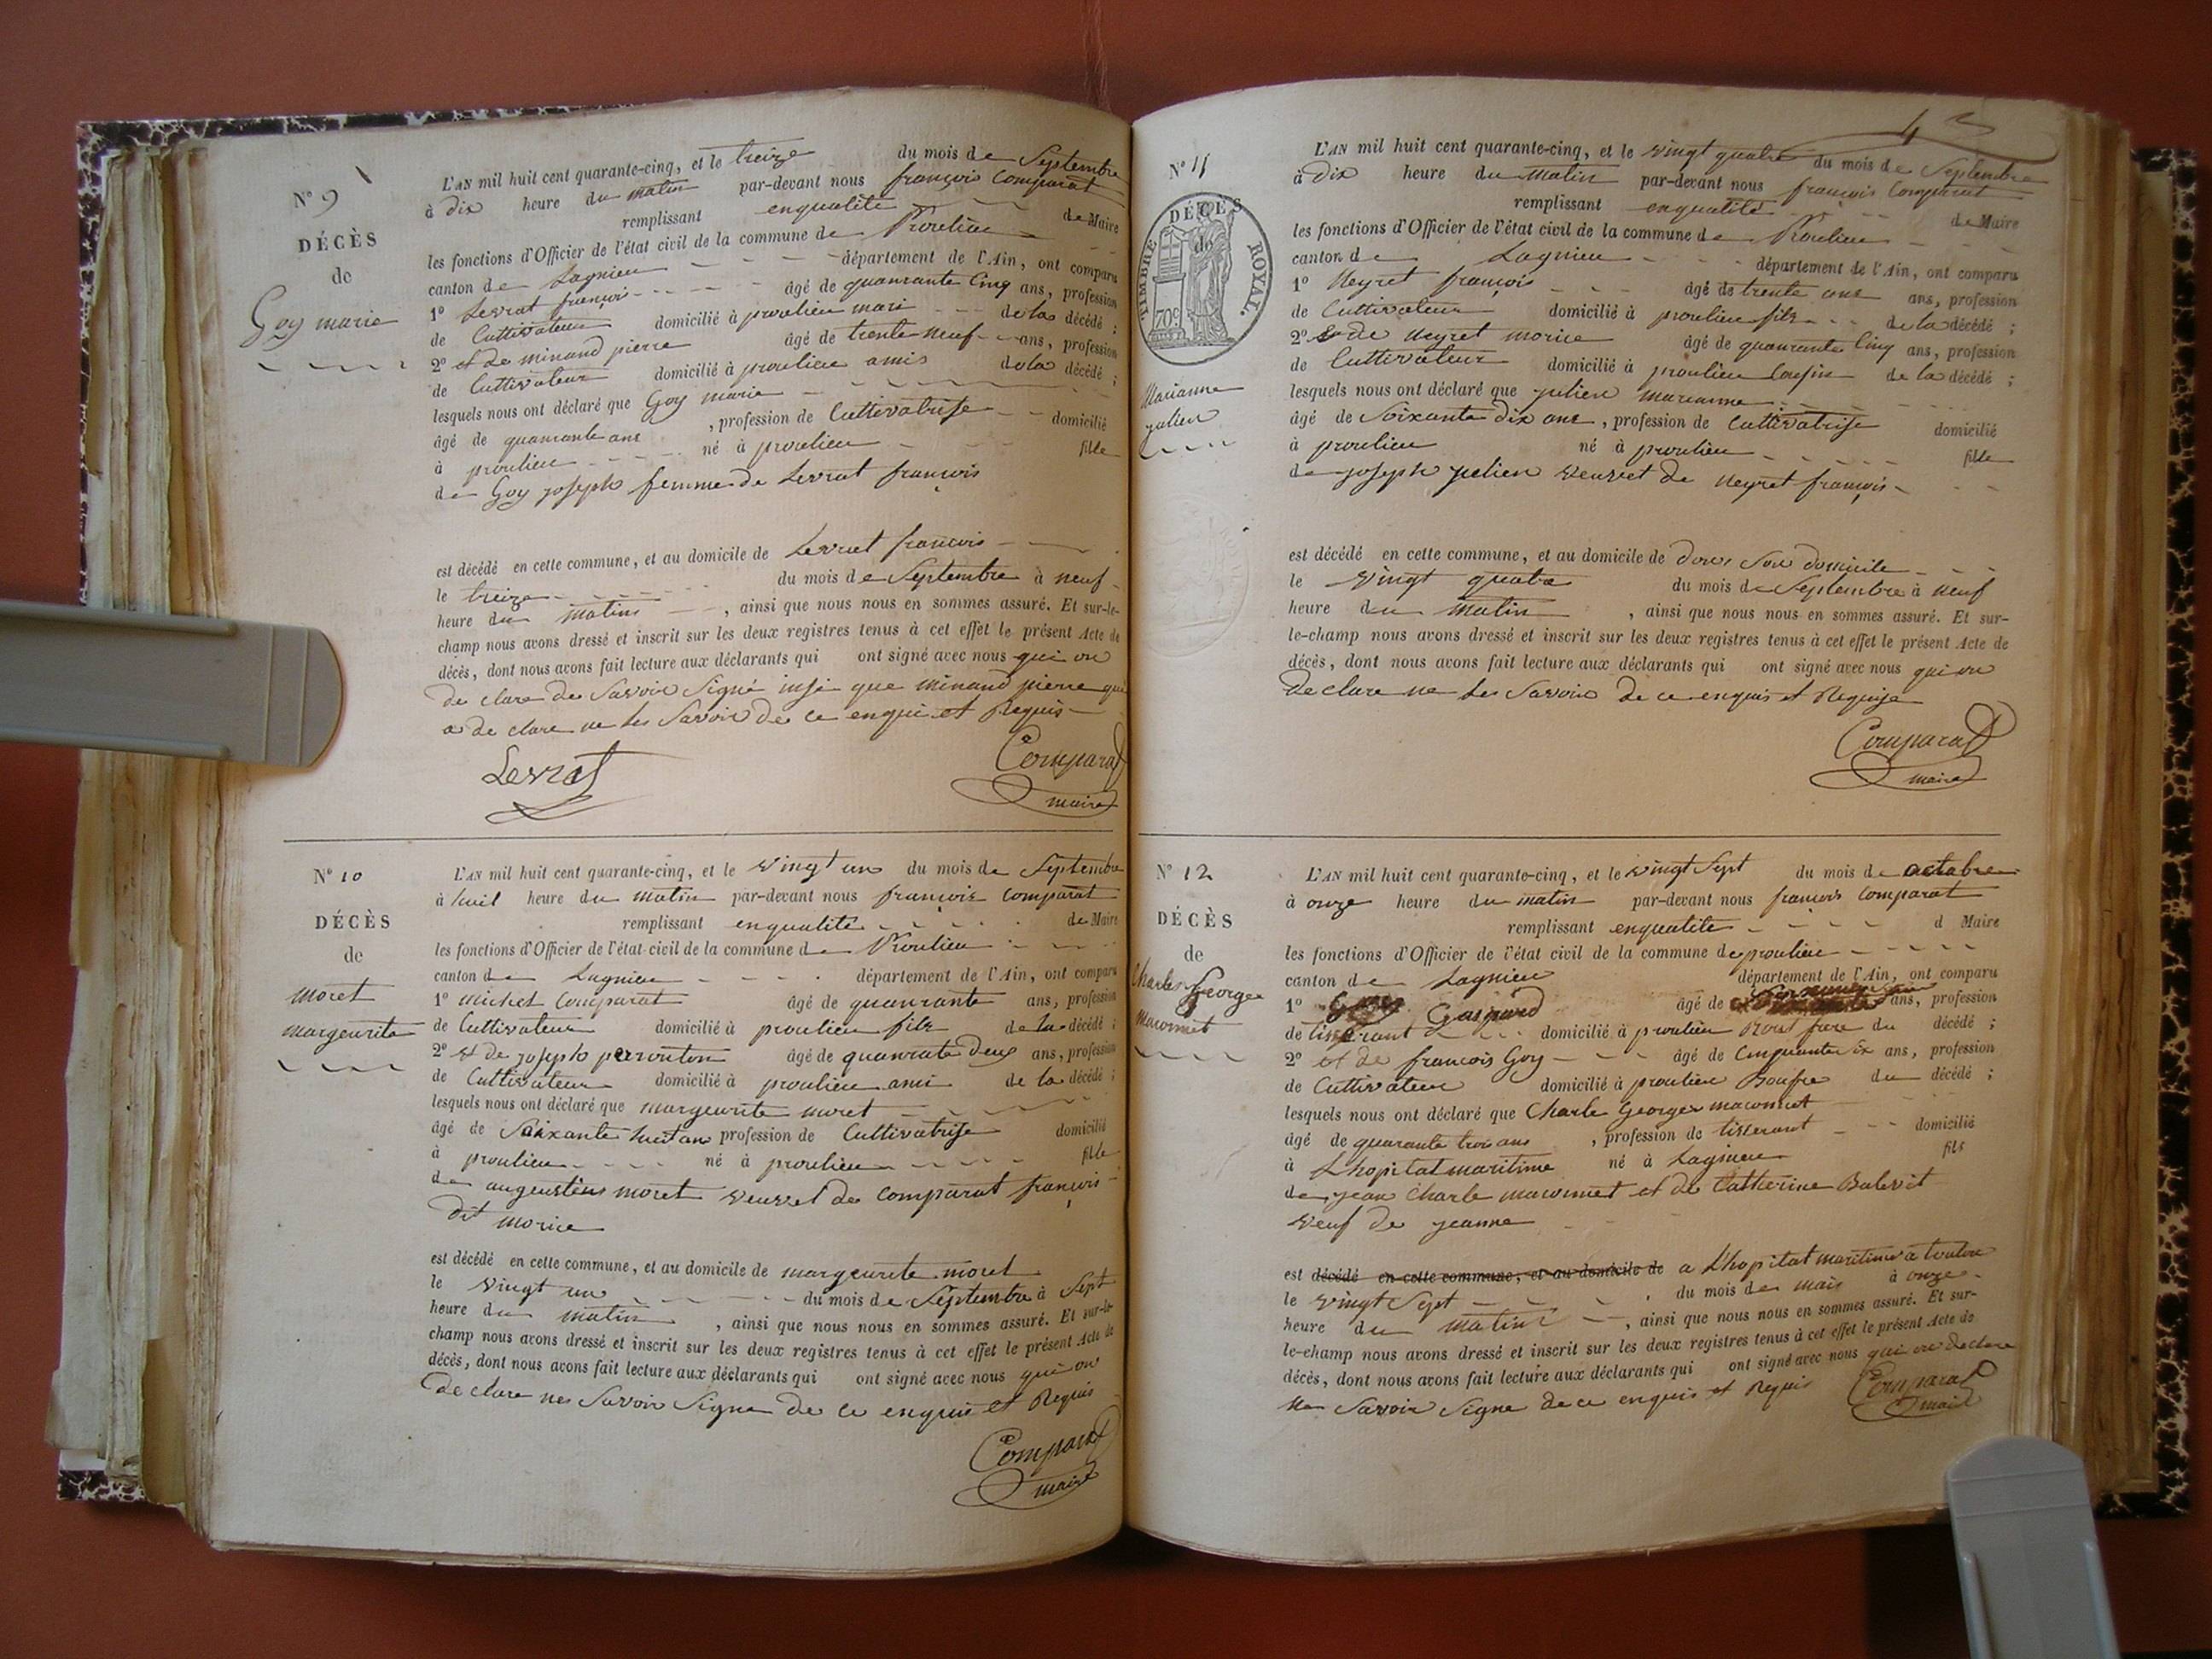 N° 9
DÉCÈS
de
Goy marie
L'AN mil huit cent quarante-cinq, et le treize du mois de Septembre
à dix heure du matin par-devant nous françois Comparat
remplissant enqualité de Maire
les fonctions d'Officier de l'état civil de la commune de Proulieu
canton de Lagnieu département de l'Ain, ont comparu
1° Levrat françois âgé de quanrante Cinq ans, profession
de Cultivateur domicilié à proulieu mari de la décédé ;
2° et de minand pierre âgé de trente neuf ans, profession
de Cultivateur domicilié à proulieu amis de la décédé ;
lesquels nous ont déclaré que Goy marie
âgé de quanrante ans , profession de Cultivatrise domicilié
à proulieu né à proulieu fille
de Goy joseph femme de Levrat françois
est décédé en cette commune, et au domicile de Levrat françois
le treize du mois de Septembre à neuf
heure du matin , ainsi que nous nous en sommes assuré. Et sur-le-
champ nous avons dressé et inscrit sur les deux registres tenus à cet effet le présent Acte de
décès, dont nous avons fait lecture aux déclarants qui ont signé avec nous qui on
de clare de Savoir Signé insi que minand pierre qui
a de clare ne les Savoir de ce enqui et Requis
Levrat
Comparat
maire
N° 10
DÉCÈS
de
moret
margeurite
L'AN mil huit cent quarante-cinq, et le vingt un du mois de Septembre
à huit heure du matin par-devant nous françois Comparat
remplissant enqualité de Maire
les fonctions d'Officier de l'état civil de la commune de Proulieu
canton de Lagnieu département de l'Ain, ont comparu
1° michel Comparat âgé de quanrante ans, profession
de Cultivateur domicilié à proulieu fils de la décédé ;
2° et de joseph perrouton âgé de quanrante deux ans, profession
de Cultivateur domicilié à proulieu ami de la décédé ;
lesquels nous ont déclaré que margeurite moret
âgé de Soixante huit an profession de Cultivatrise domicilié
à proulieu né à proulieu fille
de augeustins moret veuvet de Comparat françois
dit morice
est décédé en cette commune, et au domicile de margeurite moret
le vingt un du mois de Septembre à Sept
heure du matin , ainsi que nous nous en sommes assuré. Et sur-le-
champ nous avons dressé et inscrit sur les deux registres tenus à cet effet le présent Acte de
décès, dont nous avons fait lecture aux déclarants qui ont signé avec nous qui on
de clare nes Savoir Signe de ce enquis et Requis
Comparat
maire
N° 11
TIMBRE ROYAL
70c
DÉCÈS
de
Marianne
julien
L'AN mil huit cent quarante-cinq, et le vingt quatre du mois de Septembre
à dix heure du matin par-devant nous françois Comparat
remplissant enqualité de Maire
les fonctions d'Officier de l'état civil de la commune de Proulieu
canton de Lagnieu département de l'Ain, ont comparu
1° Neyret françois âgé de trente ans, profession
de Cultivateur domicilié à proulieu fils de la décédé ;
2° de Neyret morice âgé de quanrante Cinq ans, profession
de Cultivateur domicilié à proulieu Cousin de la décédé ;
lesquels nous ont déclaré que julien marianne
âgé de Soixante dix ans , profession de Cultivatrise domicilié
à proulieu né à proulieu fille
de joseph julien veuvet de Neyret françois
est décédé en cette commune, et au domicile de dans Son domicile
le vingt quatre du mois de Septembre à neuf
heure du matin , ainsi que nous nous en sommes assuré. Et sur-
le-champ nous avons dressé et inscrit sur les deux registres tenus à cet effet le présent Acte de
décès, dont nous avons fait lecture aux déclarants qui ont signé avec nous qui on
de clare ne les Savoir de ce enquis et Requise
Comparat
maire
N° 12
DÉCÈS
de
Charles George
maconnet
L'AN mil huit cent quarante-cinq, et le vingt Sept du mois de octobre
à onze heure du matin par-devant nous françois Comparat
remplissant enqualite d Maire
les fonctions d'Officier de l'état civil de la commune de proulieu
canton de Lagnieu département de l'Ain, ont comparu
1° Gaspard âgé de ans, profession
de tisserant domicilié à proulieu frere du décédé ;
2° et de francois Goy âgé de Cinquante six ans, profession
de Cultivateur domicilié à proulieu du décédé ;
lesquels nous ont déclaré que Charle George maconnet
âgé de quarante trois ans , profession de tisserant domicilié
à Lhopital maritime né à Lagnieu fils
de jean Charle maconnet et de Catherine
veuf de jeanne
est décédé en cette commune, et au domicile de a Lhopital maritime a toulon
le vingt Sept du mois de mais à onze
heure du matin , ainsi que nous nous en sommes assuré. Et sur-
le-champ nous avons dressé et inscrit sur les deux registres tenus à cet effet le présent Acte de
décès, dont nous avons fait lecture aux déclarants qui ont signé avec nous qui on declare
ne Savoir Signe de ce enquis et Requis
Comparat
maire